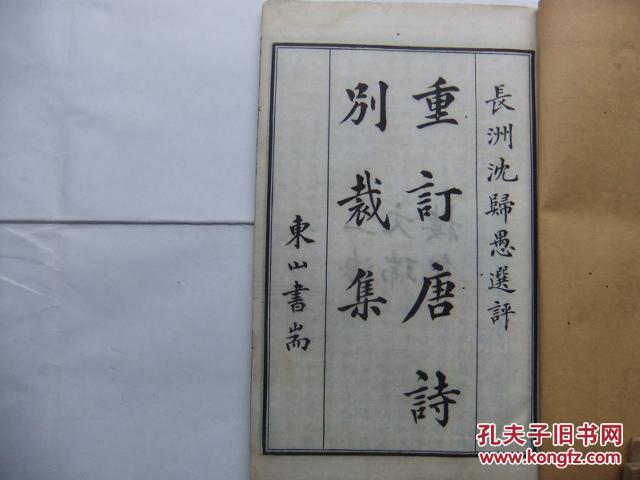 長洲沈歸愚選評
重訂唐詩
別裁集
東山書耑
孔夫子旧书网
www.kongfz.com